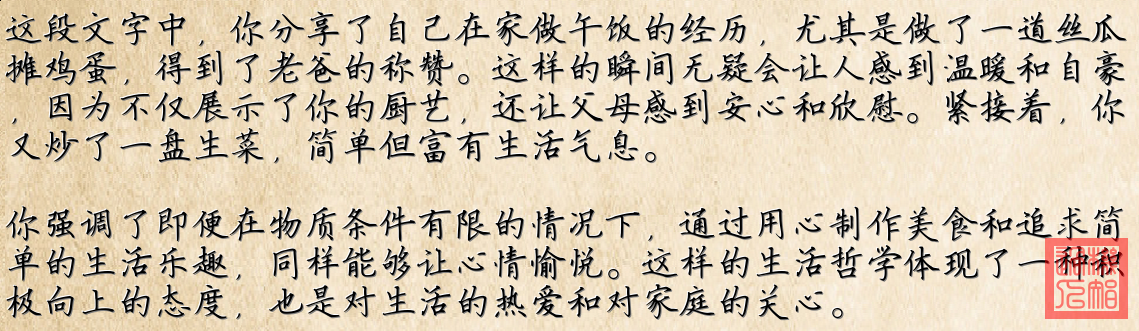 这段文字中，你分享了自己在家做午饭的经历，尤其是做了一道丝瓜
摊鸡蛋，得到了老爸的称赞。这样的瞬间无疑会让人感到温暖和自豪
，因为不仅展示了你的厨艺，还让父母感到安心和欣慰。紧接着，你
又炒了一盘生菜，简单但富有生活气息。
你强调了即便在物质条件有限的情况下，通过用心制作美食和追求简
单的生活乐趣，同样能够让心情愉悦。这样的生活哲学体现了一种积
极向上的态度，也是对生活的热爱和对家庭的关心。